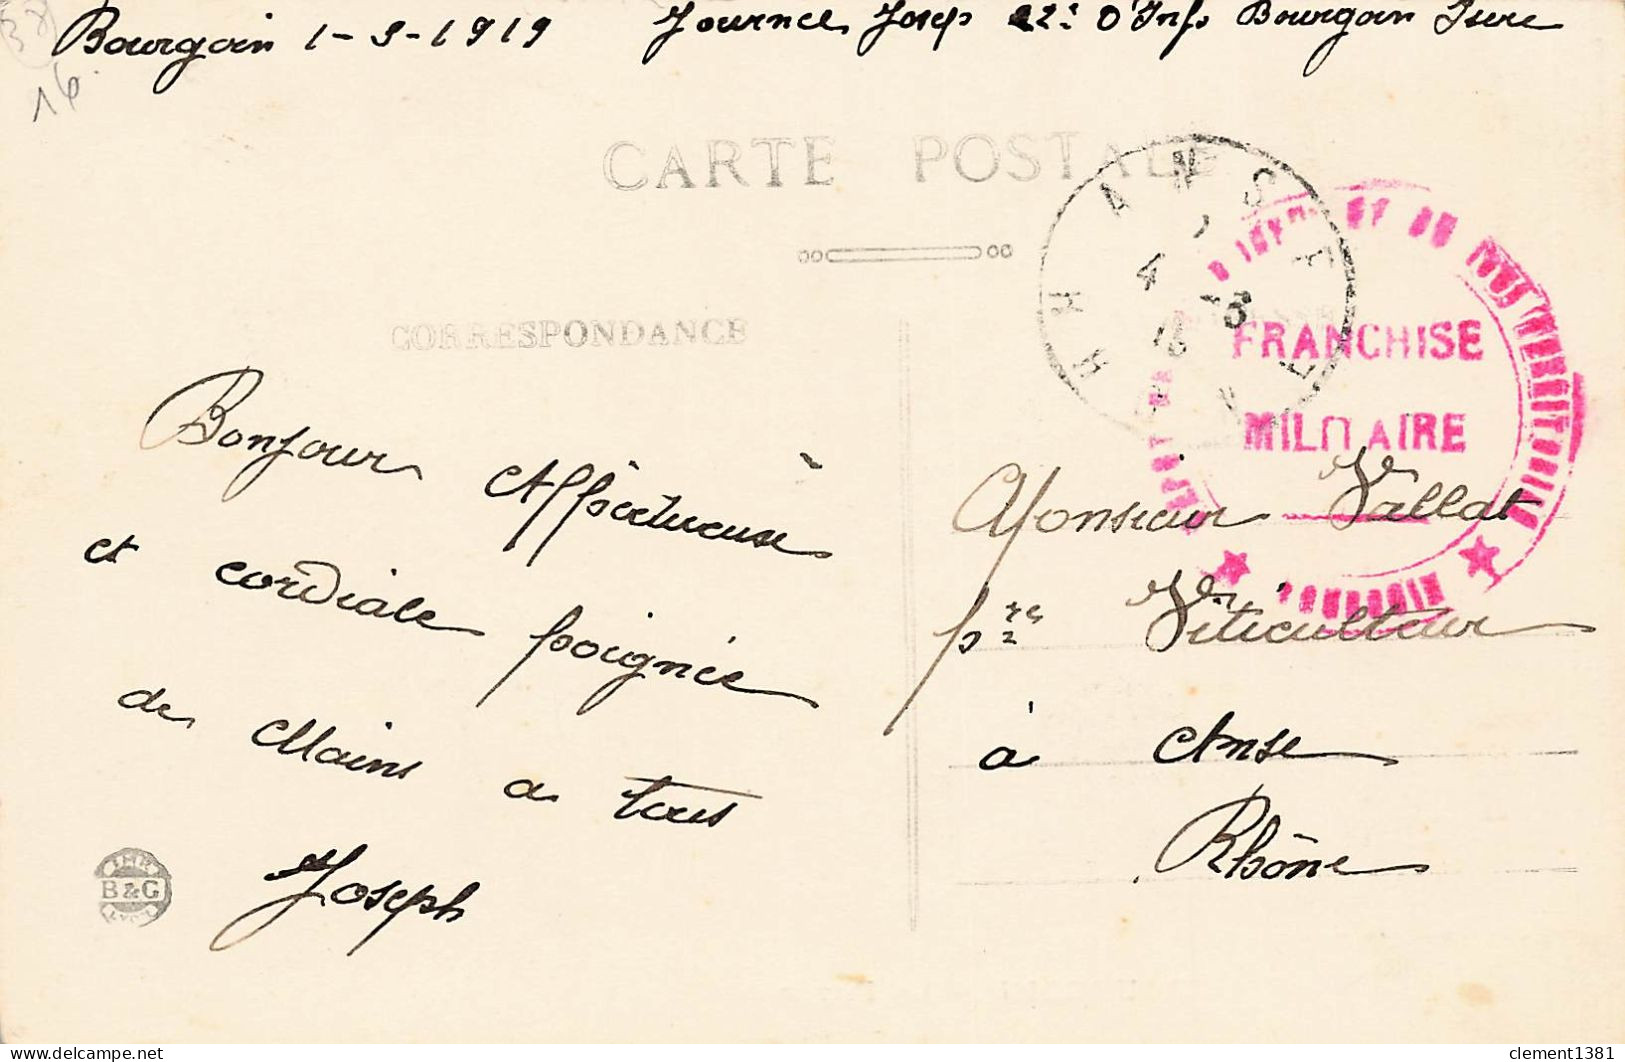 38
16.
Bourgoin 1-3-1919 Journée Josep 22e D'Inf Bourgoin Isere
CARTE POSTALE
CORRESPONDANCE
ANSE
RHÔNE
4 -3
FRANCHISE
MILITAIRE
BOURGOIN
Bonjour Affectueuse
et cordiale poignée
de Mains a tous
Joseph
Monsieur Vallat
pre Viticulteur
à Anse
Rhône
IMP.
B & G
LYON
clement1381